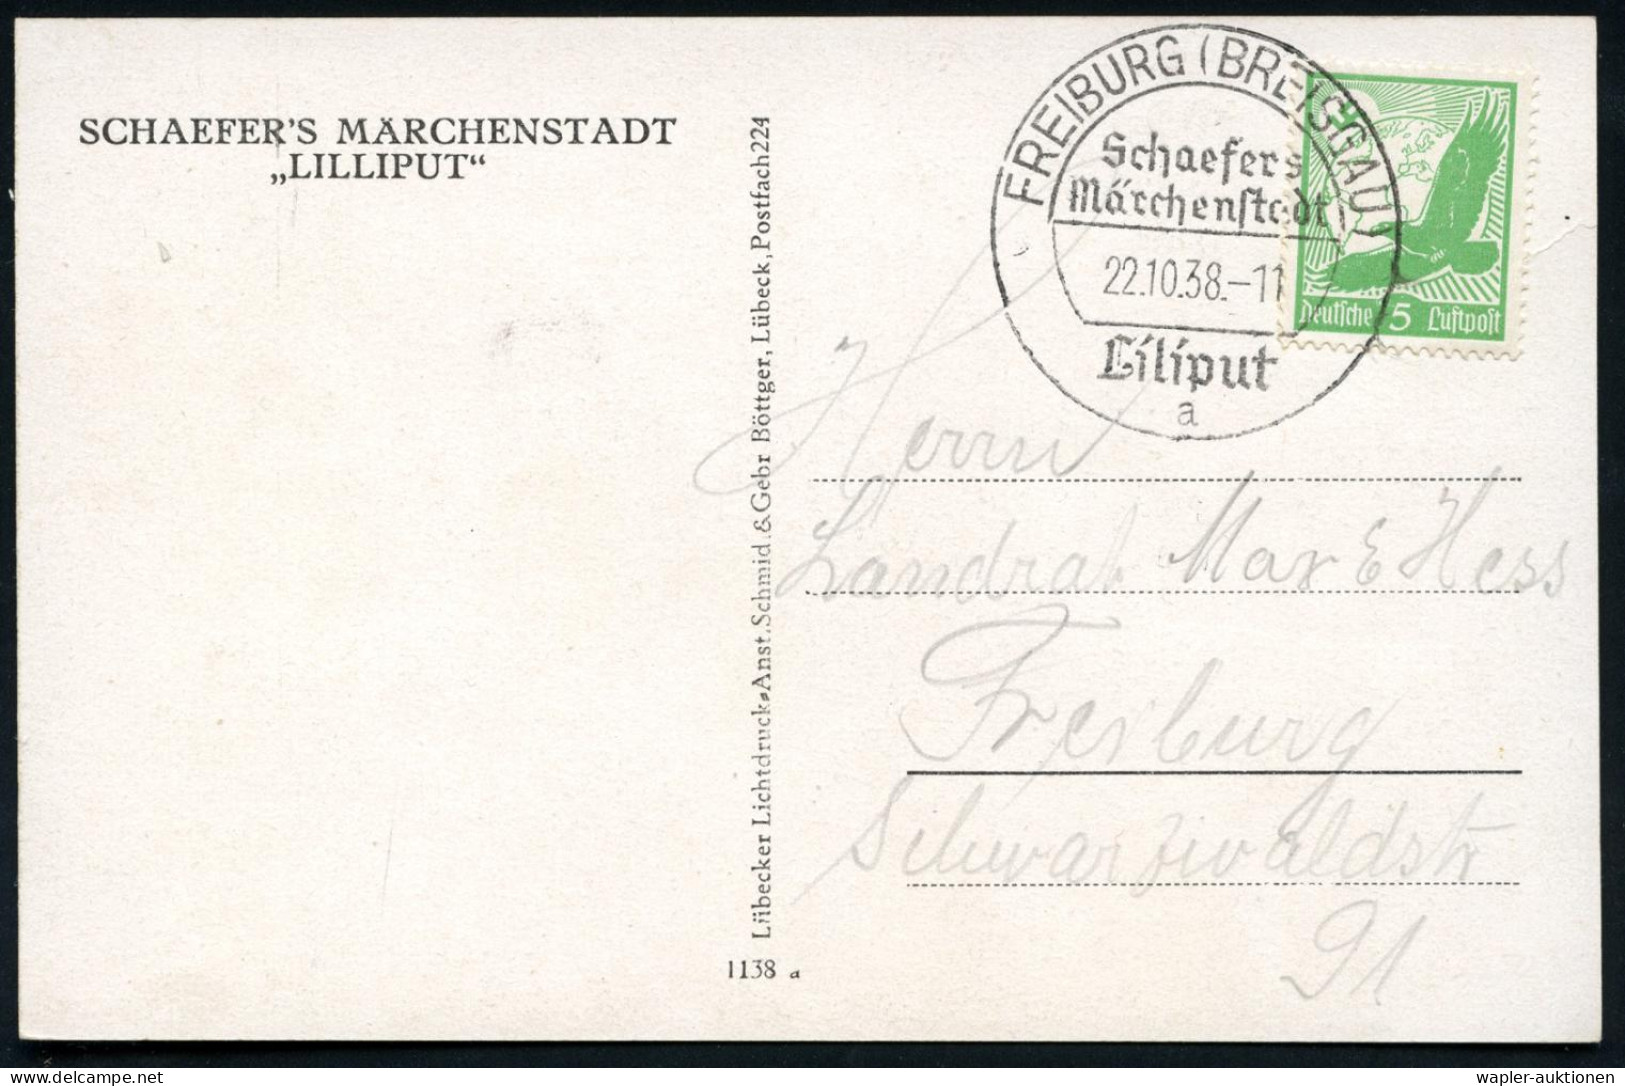 SCHAEFER'S MÄRCHENSTADT
„LILLIPUT“
Lübecker Lichtdruck-Anst. Schmid & Gebr Böttger, Lübeck, Postfach 224
1138 a
FREIBURG (BREISGAU)
Schaefers
Märchenstadt
22.10.38.-11
Liliput
a
Deutsche 5 Luftpost
Herrn
Landrat Max E Hess
Freiburg
Schwarzwaldstr
91
(c) www.delcampe.net
wapler-auktionen